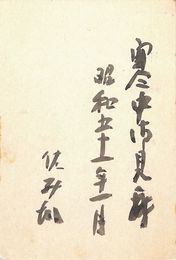 寒中御見舞
昭和五十一年一月
佐美雄